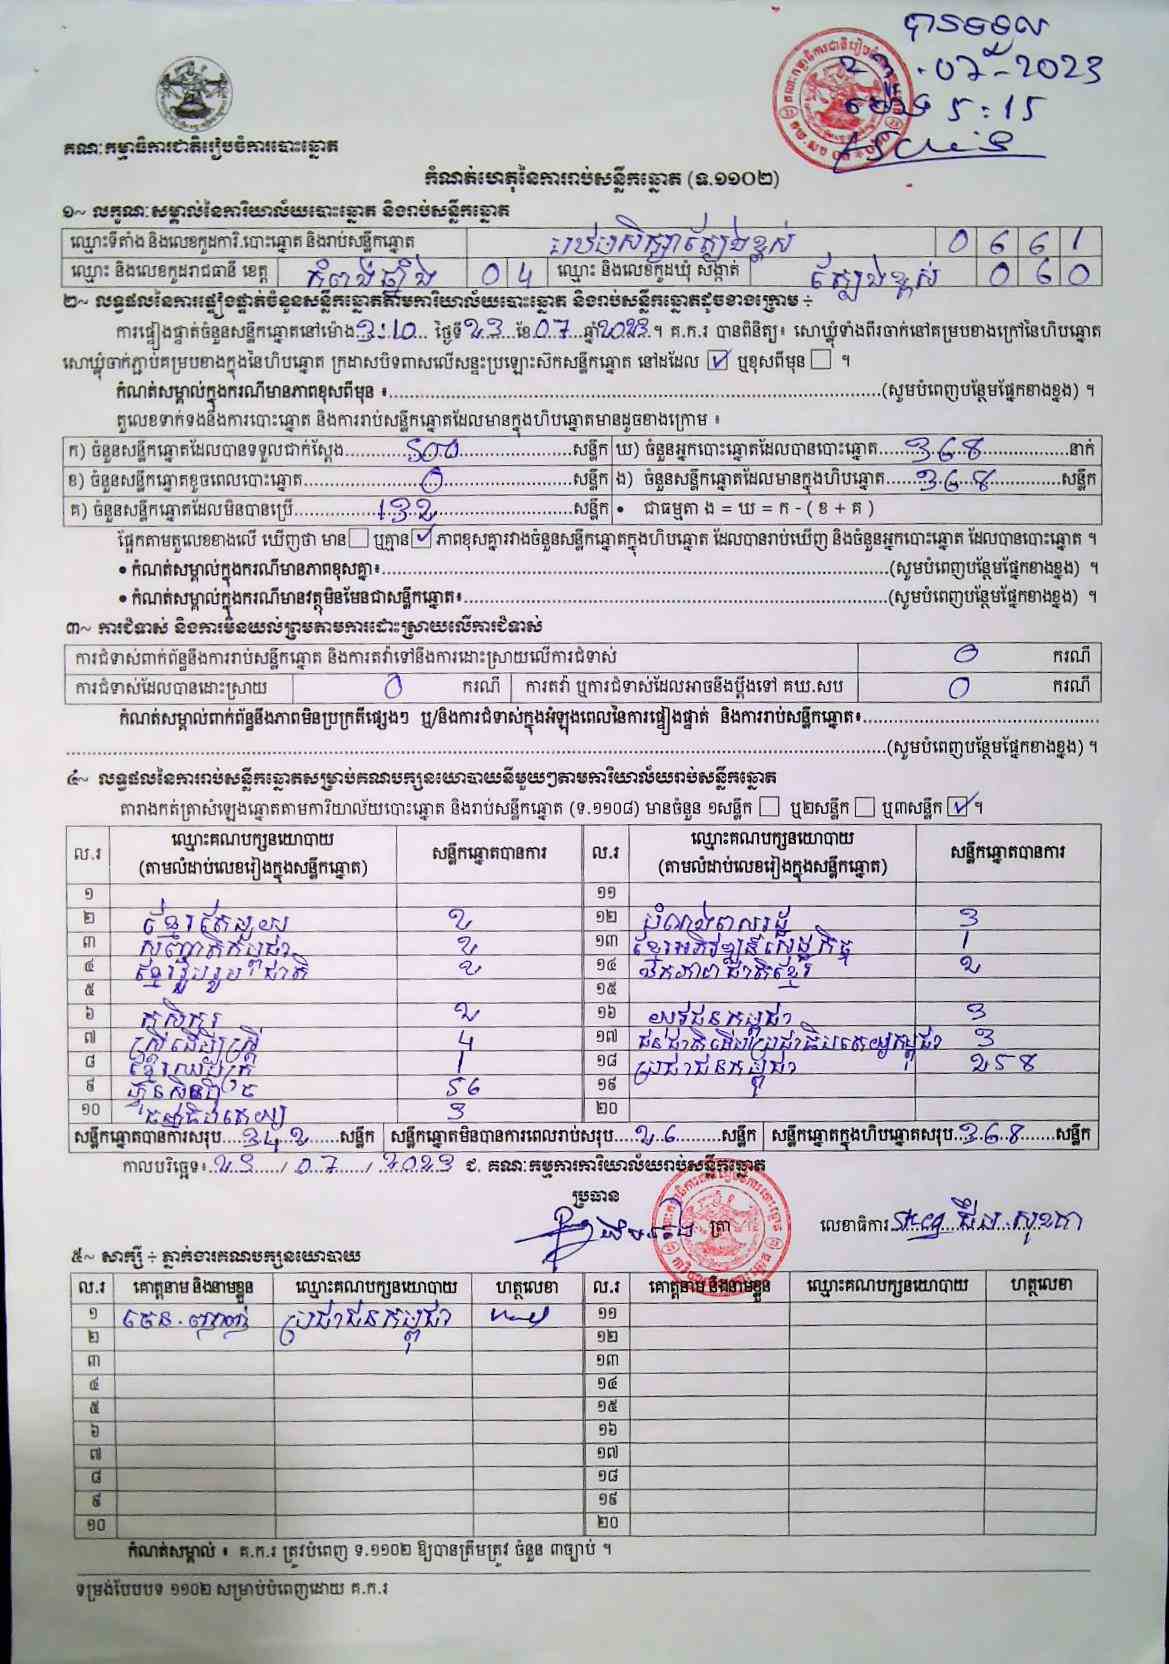 បានទទួល
23.07-2023
ម៉ោង 5:15
គណៈកម្មាធិការជាតិរៀបចំការបោះឆ្នោត
កំណត់ហេតុនៃការរាប់សន្លឹកឆ្នោត (ទ.១១០២)
១~ លក្ខណៈសម្គាល់នៃការិយាល័យបោះឆ្នោត និងរាប់សន្លឹកឆ្នោត
ឈ្មោះទីតាំង និងលេខកូដការិ.បោះឆ្នោត និងរាប់សន្លឹកឆ្នោត ត្បែងខ្ពស់ 0 6 6 1
ឈ្មោះ និងលេខកូដរាជធានី ខេត្ត កំពង់ឆ្នាំង 0 4 ឈ្មោះ និងលេខកូដឃុំ សង្កាត់ ត្បែងខ្ពស់ 0 6 0
២~ លទ្ធផលនៃការផ្ទៀងផ្ទាត់ចំនួនសន្លឹកឆ្នោតតាមការិយាល័យបោះឆ្នោត និងរាប់សន្លឹកឆ្នោតដូចខាងក្រោម ÷
ការផ្ទៀងផ្ទាត់ចំនួនសន្លឹកឆ្នោតនៅម៉ោង 3:10 ថ្ងៃទី 23 ខែ 07 ឆ្នាំ 2023 ។ គ.ក.រ បានពិនិត្យ៖ សោឃ្លុំទាំងពីរចាក់នៅគម្របខាងក្រៅនៃហិបឆ្នោត
សោឃ្លុំចាក់ភ្ជាប់គម្របខាងក្នុងនៃហិបឆ្នោត ក្រដាសបិទពាសលើសន្ទះប្រឡោះស៊កសន្លឹកឆ្នោត នៅដដែល ☑ ឬខុសពីមុន ☐ ។
កំណត់សម្គាល់ក្នុងករណីមានភាពខុសពីមុន ៖ (សូមបំពេញបន្ថែមផ្នែកខាងខ្នង) ។
តួលេខទាក់ទងនឹងការបោះឆ្នោត និងការរាប់សន្លឹកឆ្នោតដែលមានក្នុងហិបឆ្នោតមានដូចខាងក្រោម ៖
ក) ចំនួនសន្លឹកឆ្នោតដែលបានទទួលជាក់ស្ដែង 500 សន្លឹក ឃ) ចំនួនអ្នកបោះឆ្នោតដែលបានបោះឆ្នោត 368 នាក់
ខ) ចំនួនសន្លឹកឆ្នោតខូចពេលបោះឆ្នោត 0 សន្លឹក ង) ចំនួនសន្លឹកឆ្នោតដែលមានក្នុងហិបឆ្នោត 368 សន្លឹក
គ) ចំនួនសន្លឹកឆ្នោតដែលមិនបានប្រើ 132 សន្លឹក • ជាធម្មតា ង = ឃ = ក - ( ខ + គ )
ផ្អែកតាមតួលេខខាងលើ ឃើញថា មាន ☐ ឬគ្មាន ☑ ភាពខុសគ្នារវាងចំនួនសន្លឹកឆ្នោតក្នុងហិបឆ្នោត ដែលបានរាប់ឃើញ និងចំនួនអ្នកបោះឆ្នោត ដែលបានបោះឆ្នោត ។
• កំណត់សម្គាល់ក្នុងករណីមានភាពខុសគ្នា៖ (សូមបំពេញបន្ថែមផ្នែកខាងខ្នង) ។
• កំណត់សម្គាល់ក្នុងករណីមានវត្ថុមិនមែនជាសន្លឹកឆ្នោត៖ (សូមបំពេញបន្ថែមផ្នែកខាងខ្នង) ។
៣~ ការជំទាស់ និងការមិនយល់ព្រមតាមការដោះស្រាយលើការជំទាស់
ការជំទាស់ពាក់ព័ន្ធនឹងការរាប់សន្លឹកឆ្នោត និងការតវ៉ាទៅនឹងការដោះស្រាយលើការជំទាស់ 0 ករណី
ការជំទាស់ដែលបានដោះស្រាយ 0 ករណី ការតវ៉ា ឬការជំទាស់ដែលអាចនឹងប្ដឹងទៅ គឃ.សប 0 ករណី
កំណត់សម្គាល់ពាក់ព័ន្ធនឹងភាពមិនប្រក្រតីផ្សេងៗ ឬ/និងការជំទាស់ក្នុងអំឡុងពេលនៃការផ្ទៀងផ្ទាត់ និងការរាប់សន្លឹកឆ្នោត៖
(សូមបំពេញបន្ថែមផ្នែកខាងខ្នង) ។
៤~ លទ្ធផលនៃការរាប់សន្លឹកឆ្នោតសម្រាប់គណបក្សនយោបាយនីមួយៗតាមការិយាល័យរាប់សន្លឹកឆ្នោត
តារាងកត់ត្រាសំឡេងឆ្នោតតាមការិយាល័យបោះឆ្នោត និងរាប់សន្លឹកឆ្នោត (ទ.១១០៨) មានចំនួន ១សន្លឹក ☐ ឬ២សន្លឹក ☐ ឬ៣សន្លឹក ☑ ។
ល.រ ឈ្មោះគណបក្សនយោបាយ (តាមលំដាប់លេខរៀងក្នុងសន្លឹកឆ្នោត) សន្លឹកឆ្នោតបានការ ល.រ ឈ្មោះគណបក្សនយោបាយ (តាមលំដាប់លេខរៀងក្នុងសន្លឹកឆ្នោត) សន្លឹកឆ្នោតបានការ
១ ១១
២ ខ្មែរតែមួយ 2 ១២ បំណងពលរដ្ឋ 3
៣ សញ្ជាតិកម្ពុជា 2 ១៣ ខ្មែរអភិវឌ្ឍន៍សេដ្ឋកិច្ច 1
៤ ខ្មែររួបរួមជាតិ 2 ១៤ ឯកភាពជាតិខ្មែរ 2
៥ ១៥
៦ កសិករ 2 ១៦ យុវជនកម្ពុជា 3
៧ ស្ត្រីដើម្បីស្ត្រី 4 ១៧ ជនជាតិដើមប្រជាធិបតេយ្យកម្ពុជា 3
៨ ខ្មែរឈប់ក្រ 1 ១៨ ប្រជាជនកម្ពុជា 258
៩ ហ៊្វុនស៊ិនប៉ិច 56 ១៩
១០ ធម្មាធិបតេយ្យ 3 ២០
សន្លឹកឆ្នោតបានការសរុប 342 សន្លឹក សន្លឹកឆ្នោតមិនបានការពេលរាប់សរុប 26 សន្លឹក សន្លឹកឆ្នោតក្នុងហិបឆ្នោតសរុប 368 សន្លឹក
កាលបរិច្ឆេទ៖ 23 / 07 / 2023 ជ. គណៈកម្មការការិយាល័យរាប់សន្លឹកឆ្នោត
ប្រធាន
ត្រា លេខាធិការ
៥~ សាក្សី ÷ ភ្នាក់ងារគណបក្សនយោបាយ
ល.រ គោត្តនាម និងនាមខ្លួន ឈ្មោះគណបក្សនយោបាយ ហត្ថលេខា ល.រ គោត្តនាម និងនាមខ្លួន ឈ្មោះគណបក្សនយោបាយ ហត្ថលេខា
១ ប្រជាជនកម្ពុជា ១១
២ ១២
៣ ១៣
៤ ១៤
៥ ១៥
៦ ១៦
៧ ១៧
៨ ១៨
៩ ១៩
១០ ២០
កំណត់សម្គាល់ ៖ គ.ក.រ ត្រូវបំពេញ ទ.១១០២ ឱ្យបានត្រឹមត្រូវ ចំនួន ៣ច្បាប់ ។
ទម្រង់បែបបទ ១១០២ សម្រាប់បំពេញដោយ គ.ក.រ